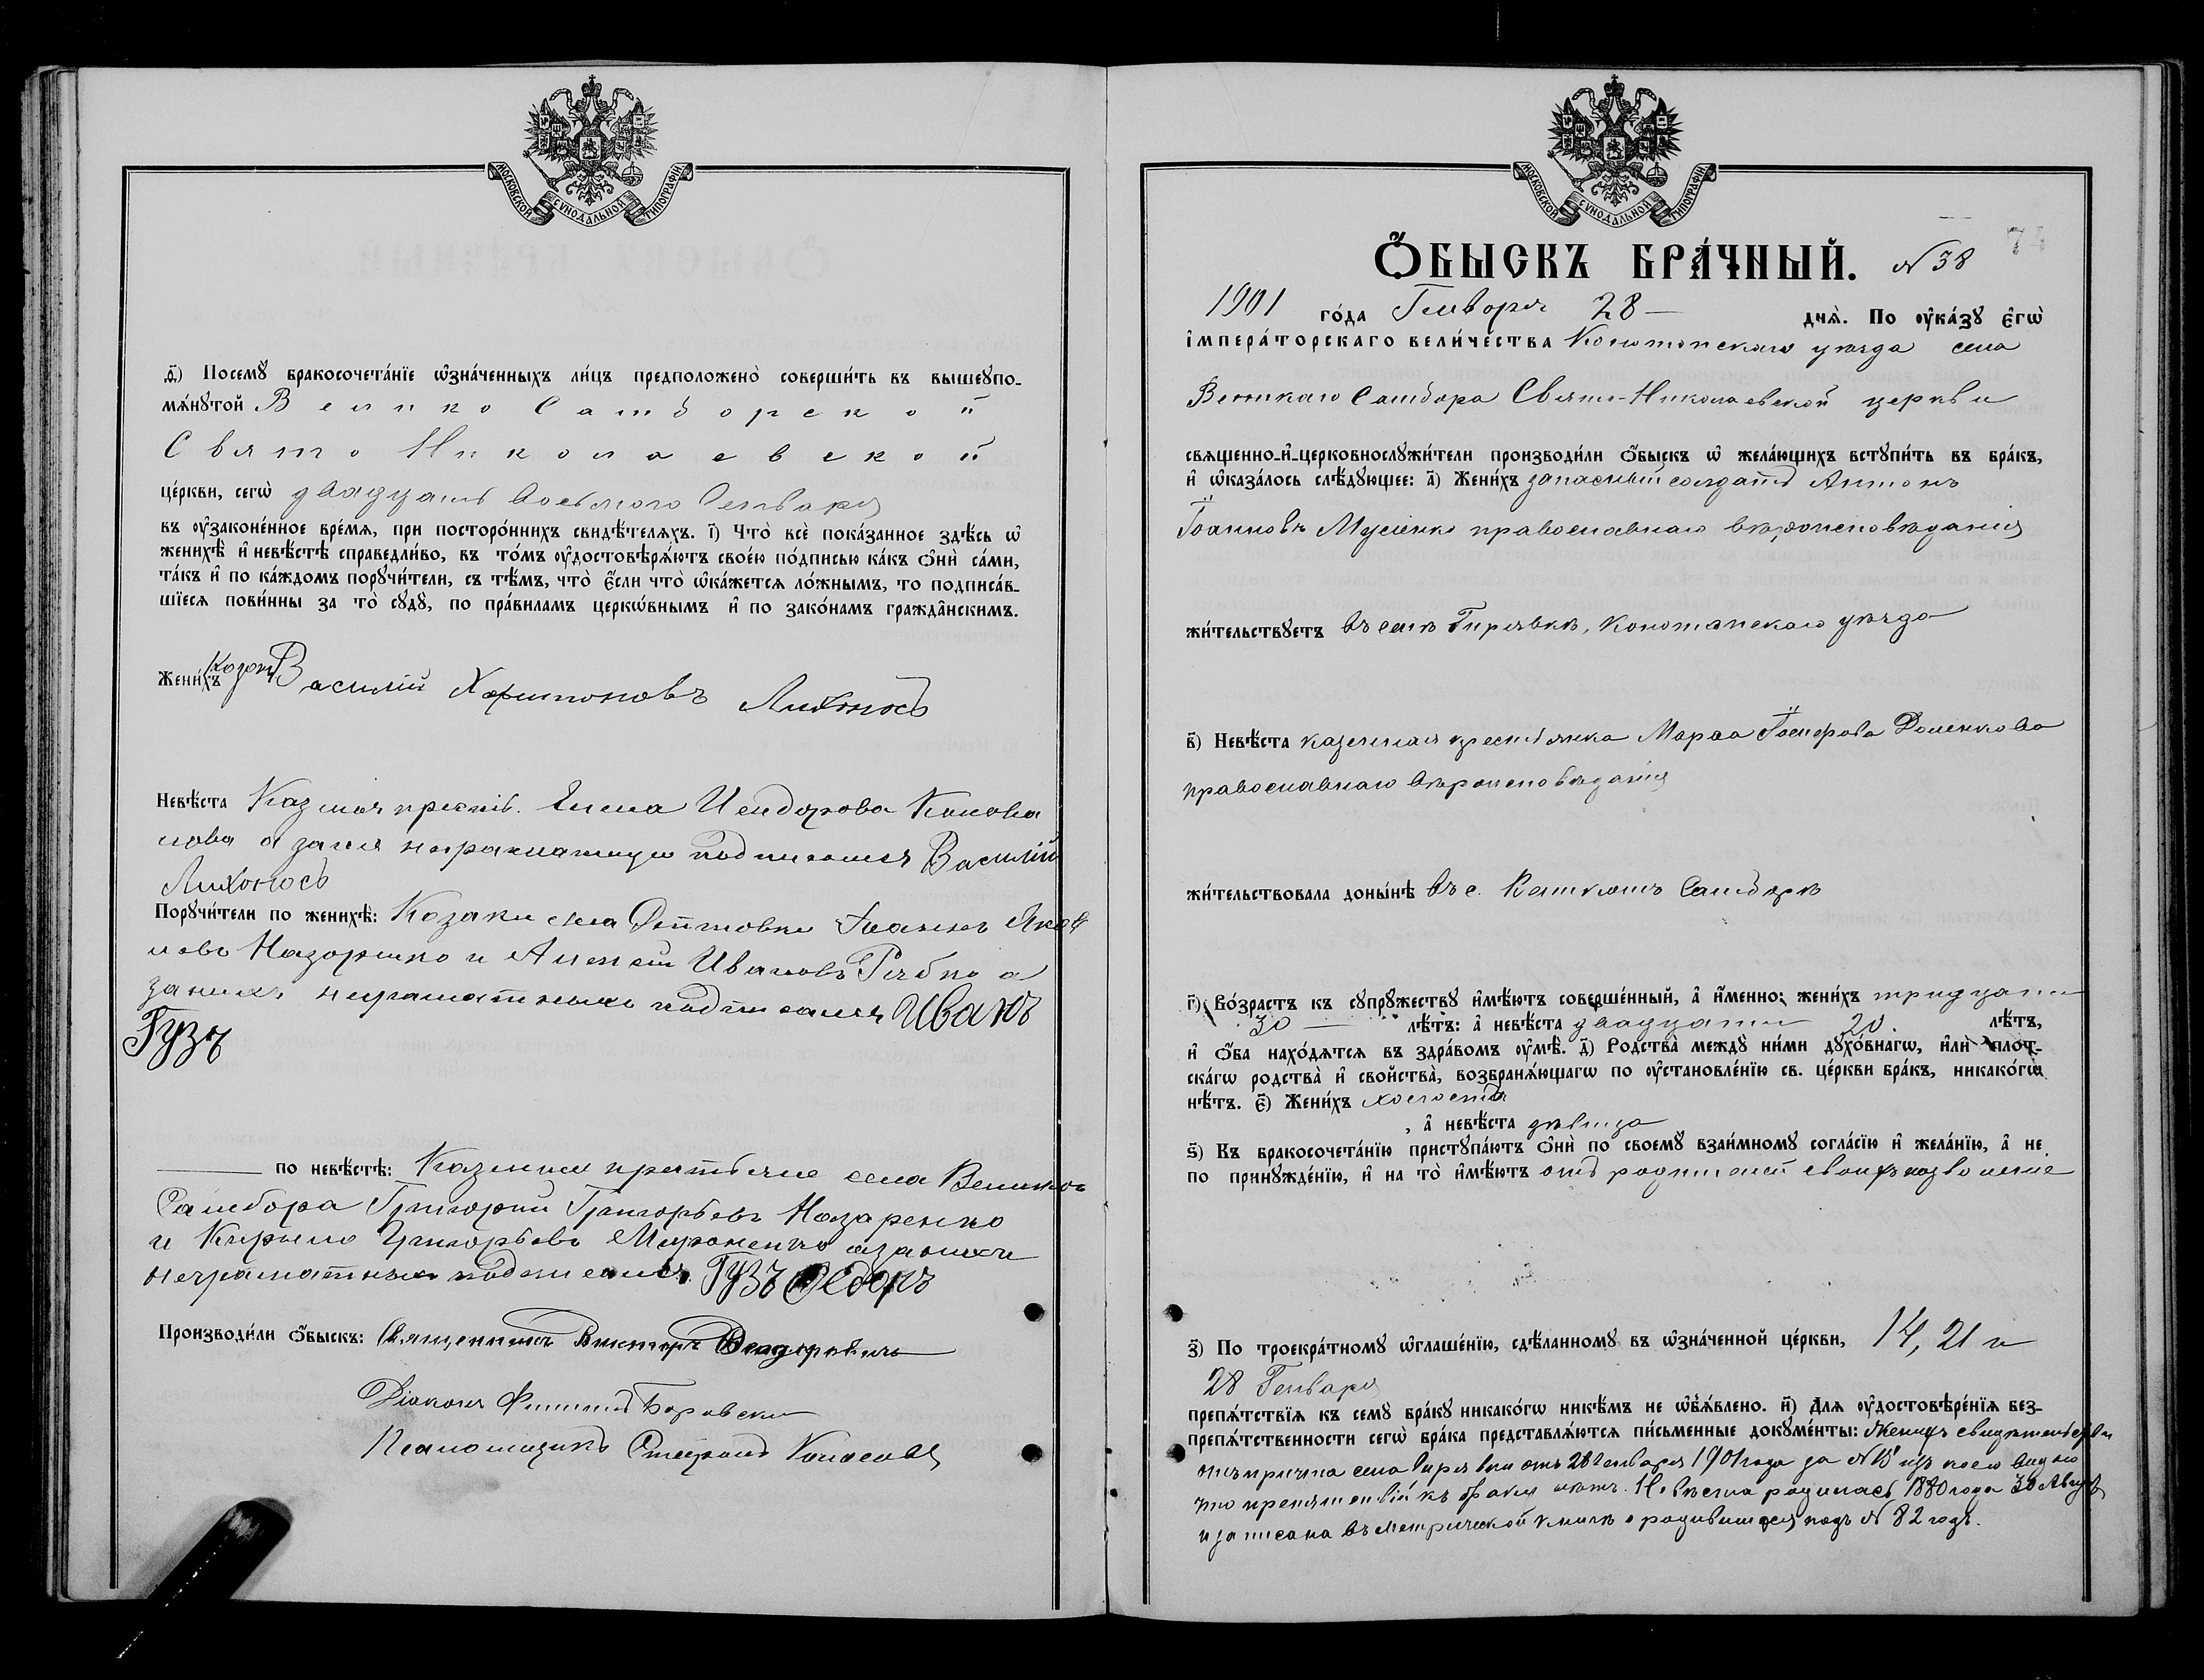 МОСКОВСКОЙ СѴНОДАЛЬНОЙ ТИПОГРАФІИ
д҃) Посемꙋ бракосочета́нїе ѡ҆зна́ченныхъ ли́цъ предположено̀ соверши́ть въ вышеꙋпо-
мѧ́нꙋтой Велико Самборской
Свято Николаевской
це́ркви, сегѡ̀ двадцать восьмого Генваря
въ ᲂу҆законе́нное вре́мѧ, при посторо́ннихъ свидѣ́телѧхъ. і҃) Что̀ всѐ пока́занное здѣ́сь ѡ҆
женихѣ̀ и҆ невѣ́стѣ справедли́во, въ то́мъ ᲂу҆достовѣрѧ́ютъ свое́ю по́дписью ка́къ ѻ҆нѝ са́ми,
та́къ и҆ по ка́ждомъ порꙋчи́тели, съ тѣ́мъ, что̀ є҆́сли что̀ ѡ҆ка́жетсѧ ло́жнымъ, то подписа́в-
шїесѧ пови́нны за то̀ сꙋдꙋ̀, по пра́виламъ церкѡ́внымъ и҆ по зако́намъ гражда̂нскимъ.
Жени́хъ Козакъ Василій Харитоновъ Лихоносъ
Невѣ́ста Казенная крест. Елена Исидорова Конова
лова а за нея неграмотную подписался Василій
Лихоносъ
Порꙋчи́тели по женихѣ̀: Козаки села Дептовки Іоаннъ Яков
левъ Назаренко и Алексей Ивановъ Рябко а
за нихъ неграмотныхъ подписался Иванъ
Гузъ
по невѣ́стѣ: Казенные крестьяне села Великого
Самбора Григорий Григорьевъ Назаренко
и Кирилло Григорьевъ Мироненко а за нихъ
неграмотныхъ подписался Гузъ Федоръ
Производи́ли ѻ҆́быскъ: Священникъ Викторъ
Діаконъ Филиппъ Боровски
Псаломщикъ Стефанъ
МОСКОВСКОЙ СѴНОДАЛЬНОЙ ТИПОГРАФІИ
74
Ѻ҆́БЫСКЪ БРА́ЧНЫЙ. N 38
1901 го́да Генваря 28 днѧ̀. По ᲂу҆ка́зꙋ є҆гѡ̀
і҆мпера́торскаго вели́чества Конотопскаго уѣзда села
Великаго Самбора Свято-Николаевской церкви
свѧщенно-и҆-церковнослꙋжи́тели производи́ли ѻ҆́быскъ ѡ҆ жела́ющихъ встꙋпи́ть въ бра́къ,
и҆ ѡ҆каза́лось слѣ́дꙋющее: а҃) Жени́хъ запасный солдатъ Антонъ
Іоанновъ Мусіенко православнаго вѣроисповѣданія
жи́тельствꙋетъ въ селѣ Гирявкѣ, Конотопскаго уѣзда
в҃) Невѣ́ста казенная крестьянка Марѳа Іосифова Доценкова
православнаго вѣроисповѣданія
жи́тельствовала доны́нѣ въ с. Великомъ Самборѣ
г҃) Во́зрастъ къ сꙋпрꙋ́жествꙋ и҆мѣ́ютъ соверше́нный, а҆ и҆́менно: жени́хъ тридцати
30 лѣ́тъ: а҆ невѣ́ста двадцати 20 лѣ́тъ,
и҆ ѻ҆́ба нахо́дѧтсѧ въ здра́вомъ ᲂу҆мѣ̀. д҃) Родства̀ междꙋ̀ ни́ми дꙋхо́внагѡ, и҆лѝ пло́т-
скагѡ родства̀ и҆ свойства̀, возбранѧ́ющагѡ по ᲂу҆становле́нїю св. це́ркви бра́къ, никако́гѡ
нѣ́тъ. є҃) Жени́хъ холостъ
, а҆ невѣ́ста дѣвица
ѕ҃) Къ бракосочета́нїю пристꙋпа́ютъ ѻ҆нѝ по своемꙋ̀ взаи́мномꙋ согла́сїю и҆ жела́нїю, а҆ не
по принꙋжде́нїю, и҆ на то̀ и҆мѣ́ютъ отъ родителей своихъ позволеніе
з҃) По троекра́тномꙋ ѡ҆глаше́нїю, сдѣ́ланномꙋ въ ѡ҆зна́ченной це́ркви, 14, 21 и
28 Генваря
препѧ́тствїѧ къ семꙋ̀ бра́кꙋ никако́гѡ никѣ́мъ не ѡ҆бъѧ́влено. и҃) Длѧ ᲂу҆достовѣре́нїѧ без-
препѧ́тственности сегѡ̀ бра́ка представлѧ́ютсѧ пи́сьменные докꙋме́нты: Женихъ свидѣтельство
отъ причта села Гирявки отъ 28 Генваря 1901 года за N 15 изъ коего видно
что препятствій къ браку нѣтъ. Невѣста родилась 1880 года 30 Августа
и записана въ метрической книгѣ о родившихся подъ N 82 годъ.